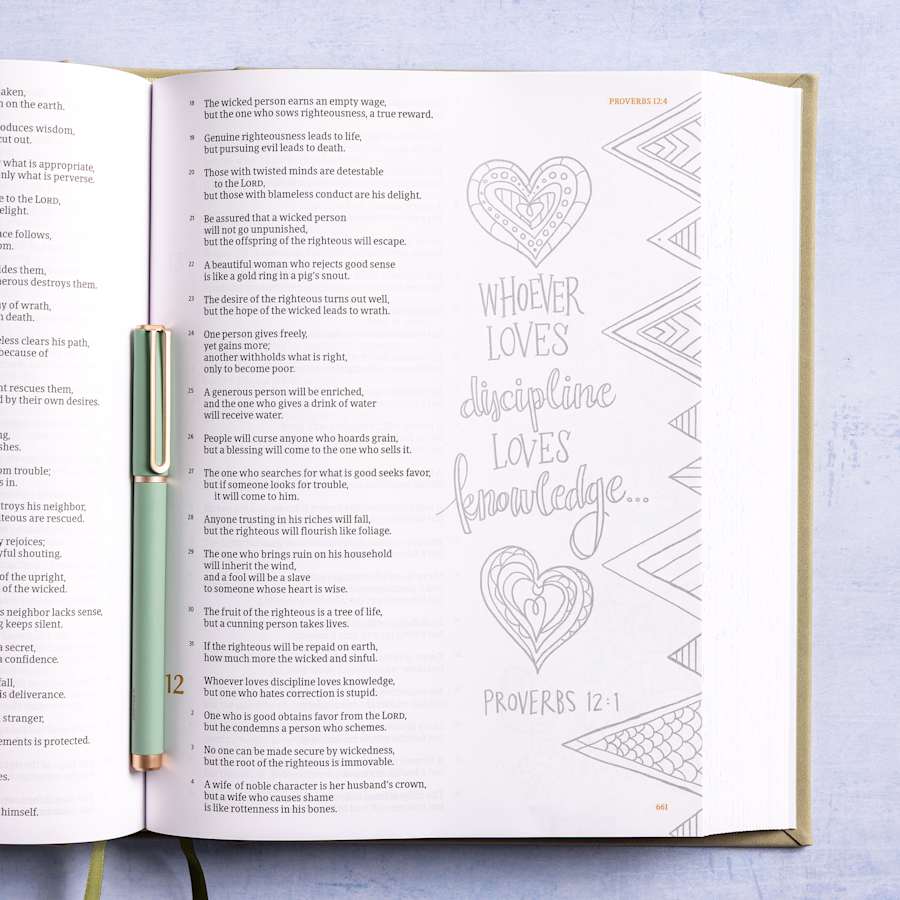 aken,
n on the earth.
oduces wisdom,
cut out.
what is appropriate,
nly what is perverse.
e to the LORD,
elight.
ace follows,
om.
ides them,
herous destroys them.
ay of wrath,
n death.
eless clears his path,
because of
nt rescues them,
d by their own desires.
ng,
shes.
om trouble;
s in.
troys his neighbor,
hteous are rescued.
y rejoices;
yful shouting.
of the upright,
of the wicked.
s neighbor lacks sense,
g keeps silent.
a secret,
a confidence.
fall,
is deliverance.
stranger,
ements is protected.
es.
himself.
PROVERBS 12:4
18 The wicked person earns an empty wage,
but the one who sows righteousness, a true reward.
19 Genuine righteousness leads to life,
but pursuing evil leads to death.
20 Those with twisted minds are detestable
to the LORD,
but those with blameless conduct are his delight.
21 Be assured that a wicked person
will not go unpunished,
but the offspring of the righteous will escape.
22 A beautiful woman who rejects good sense
is like a gold ring in a pig's snout.
23 The desire of the righteous turns out well,
but the hope of the wicked leads to wrath.
24 One person gives freely,
yet gains more;
another withholds what is right,
only to become poor.
25 A generous person will be enriched,
and the one who gives a drink of water
will receive water.
26 People will curse anyone who hoards grain,
but a blessing will come to the one who sells it.
27 The one who searches for what is good seeks favor,
but if someone looks for trouble,
it will come to him.
28 Anyone trusting in his riches will fall,
but the righteous will flourish like foliage.
29 The one who brings ruin on his household
will inherit the wind,
and a fool will be a slave
to someone whose heart is wise.
30 The fruit of the righteous is a tree of life,
but a cunning person takes lives.
31 If the righteous will be repaid on earth,
how much more the wicked and sinful.
12 Whoever loves discipline loves knowledge,
but one who hates correction is stupid.
2 One who is good obtains favor from the LORD,
but he condemns a person who schemes.
3 No one can be made secure by wickedness,
but the root of the righteous is immovable.
4 A wife of noble character is her husband's crown,
but a wife who causes shame
is like rottenness in his bones.
WHOEVER
LOVES
discipline
LOVES
knowledge...
PROVERBS 12:1
661